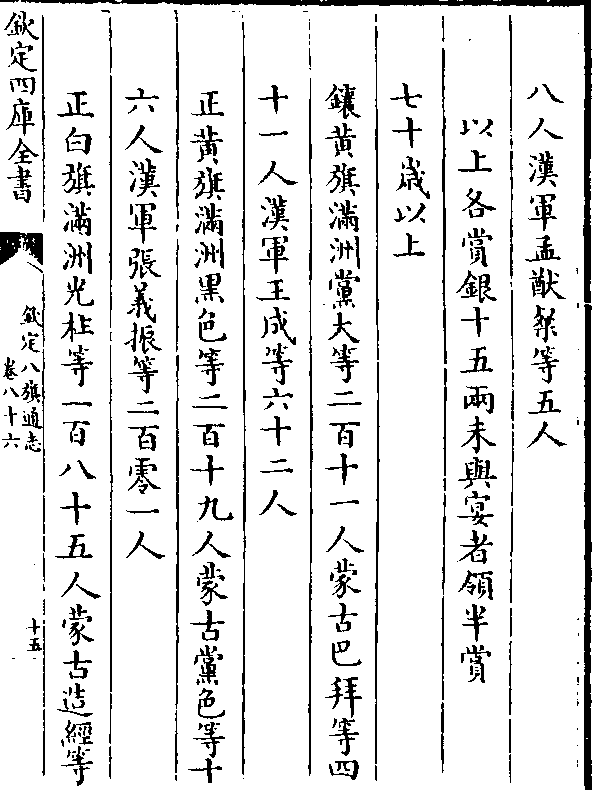 八人漢軍孟猷粲等五人
以上各賞銀十五兩未與宴者領半賞
七十歲以上
鑲黃旗滿洲黨大等二百十一人蒙古巴拜等四
十一人漢軍王成等六十二人
正黃旗滿洲黑色等二百十九人蒙古黨色等十
六人漢軍張義振等二百零一人
正白旗滿洲光柱等一百八十五人蒙古造經等
欽定四庫全書
欽定八旗通志
卷八十六
十五